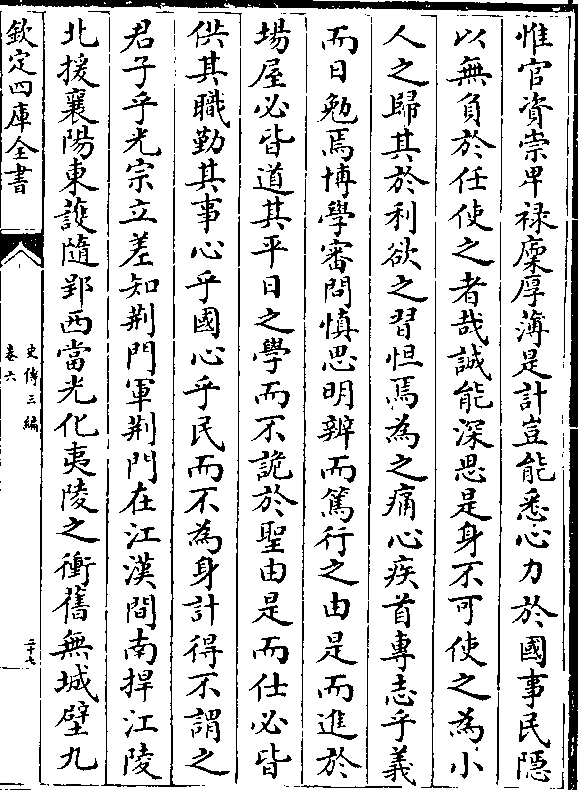 惟官資崇卑祿廩厚薄是計豈能悉心力於國事民隱
以無負於任使之者哉誠能深思是身不可使之為小
人之歸其於利欲之習怛焉為之痛心疾首專志乎義
而日勉焉博學審問慎思明辨而篤行之由是而進於
場屋必皆道其平日之學而不詭於聖由是而仕必皆
供其職勤其事心乎國心乎民而不為身計得不謂之
君子乎光宗立差知荊門軍荊門在江漢間南捍江陵
北援襄陽東護隨郢西當光化夷陵之衝舊無城壁九
欽定四庫全書
史傳三編
卷六
二十七